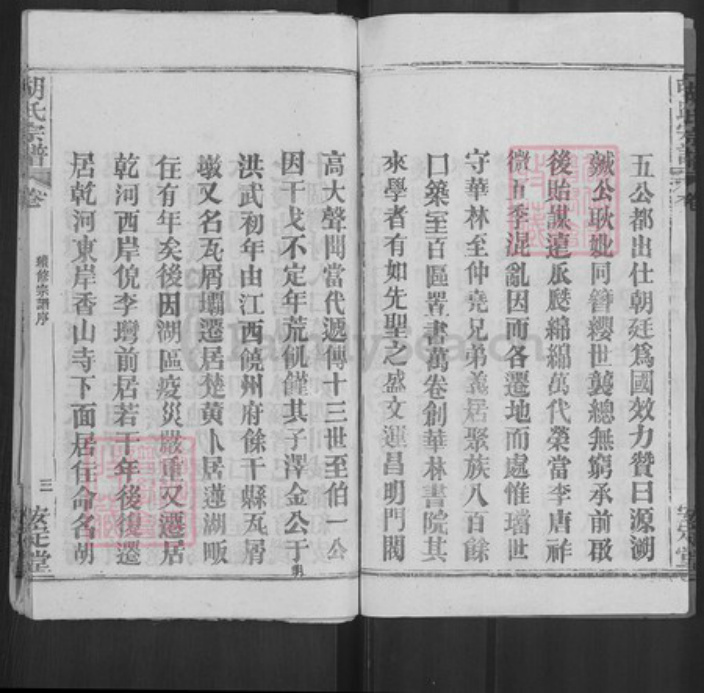 五公都出仕朝廷爲國效力贊曰源溯
公耿妣同簪纓世襲總無窮承前啟
後貽謀遠瓜瓞綿綿萬代榮當李唐祚
微五季混亂因而各遷地而處惟璿世
守華林至仲堯兄弟義居聚族八百餘
口築室百區置書萬卷創華林書院其
來學者有如先聖之盛文運昌明門閥
高大聲聞當代遞傳十三世至伯一公
因干戈不定年荒飢饉其子澤金公于明
洪武初年由江西饒州府餘干縣瓦屑
墩又名瓦屑壩遷居楚黃卜居蓮湖畈
住有年矣後因湖區疫災嚴重又遷居
乾河西岸倪李灣前居若干年後復遷
居乾河東岸香山寺下面居住命名胡
胡氏宗譜
卷
續修宗譜序
三
安定堂
FamilySearch